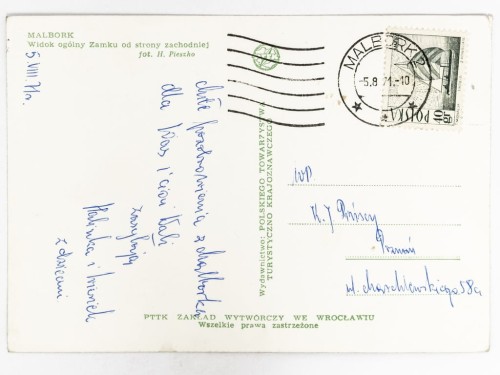 MALBORK
Widok ogólny Zamku od strony zachodniej
fot. H. Pieszko
5.VIII 71r.
MALBORK 2
-5.8.71.-10
POLSKA
miłe pozdrowienia z Malborka
dla Was i Cioci Kali
zasyłają
Halinka i
z dziećmi
Wydawnictwo: POLSKIEGO TOWARZYSTWA
TURYSTYCZNO KRAJOZNAWCZEGO
WP
K. J.
Poznań
ul. Marchlewskiego 58a
PTTK ZAKŁAD WYTWÓRCZY WE WROCŁAWIU
Wszelkie prawa zastrzeżone